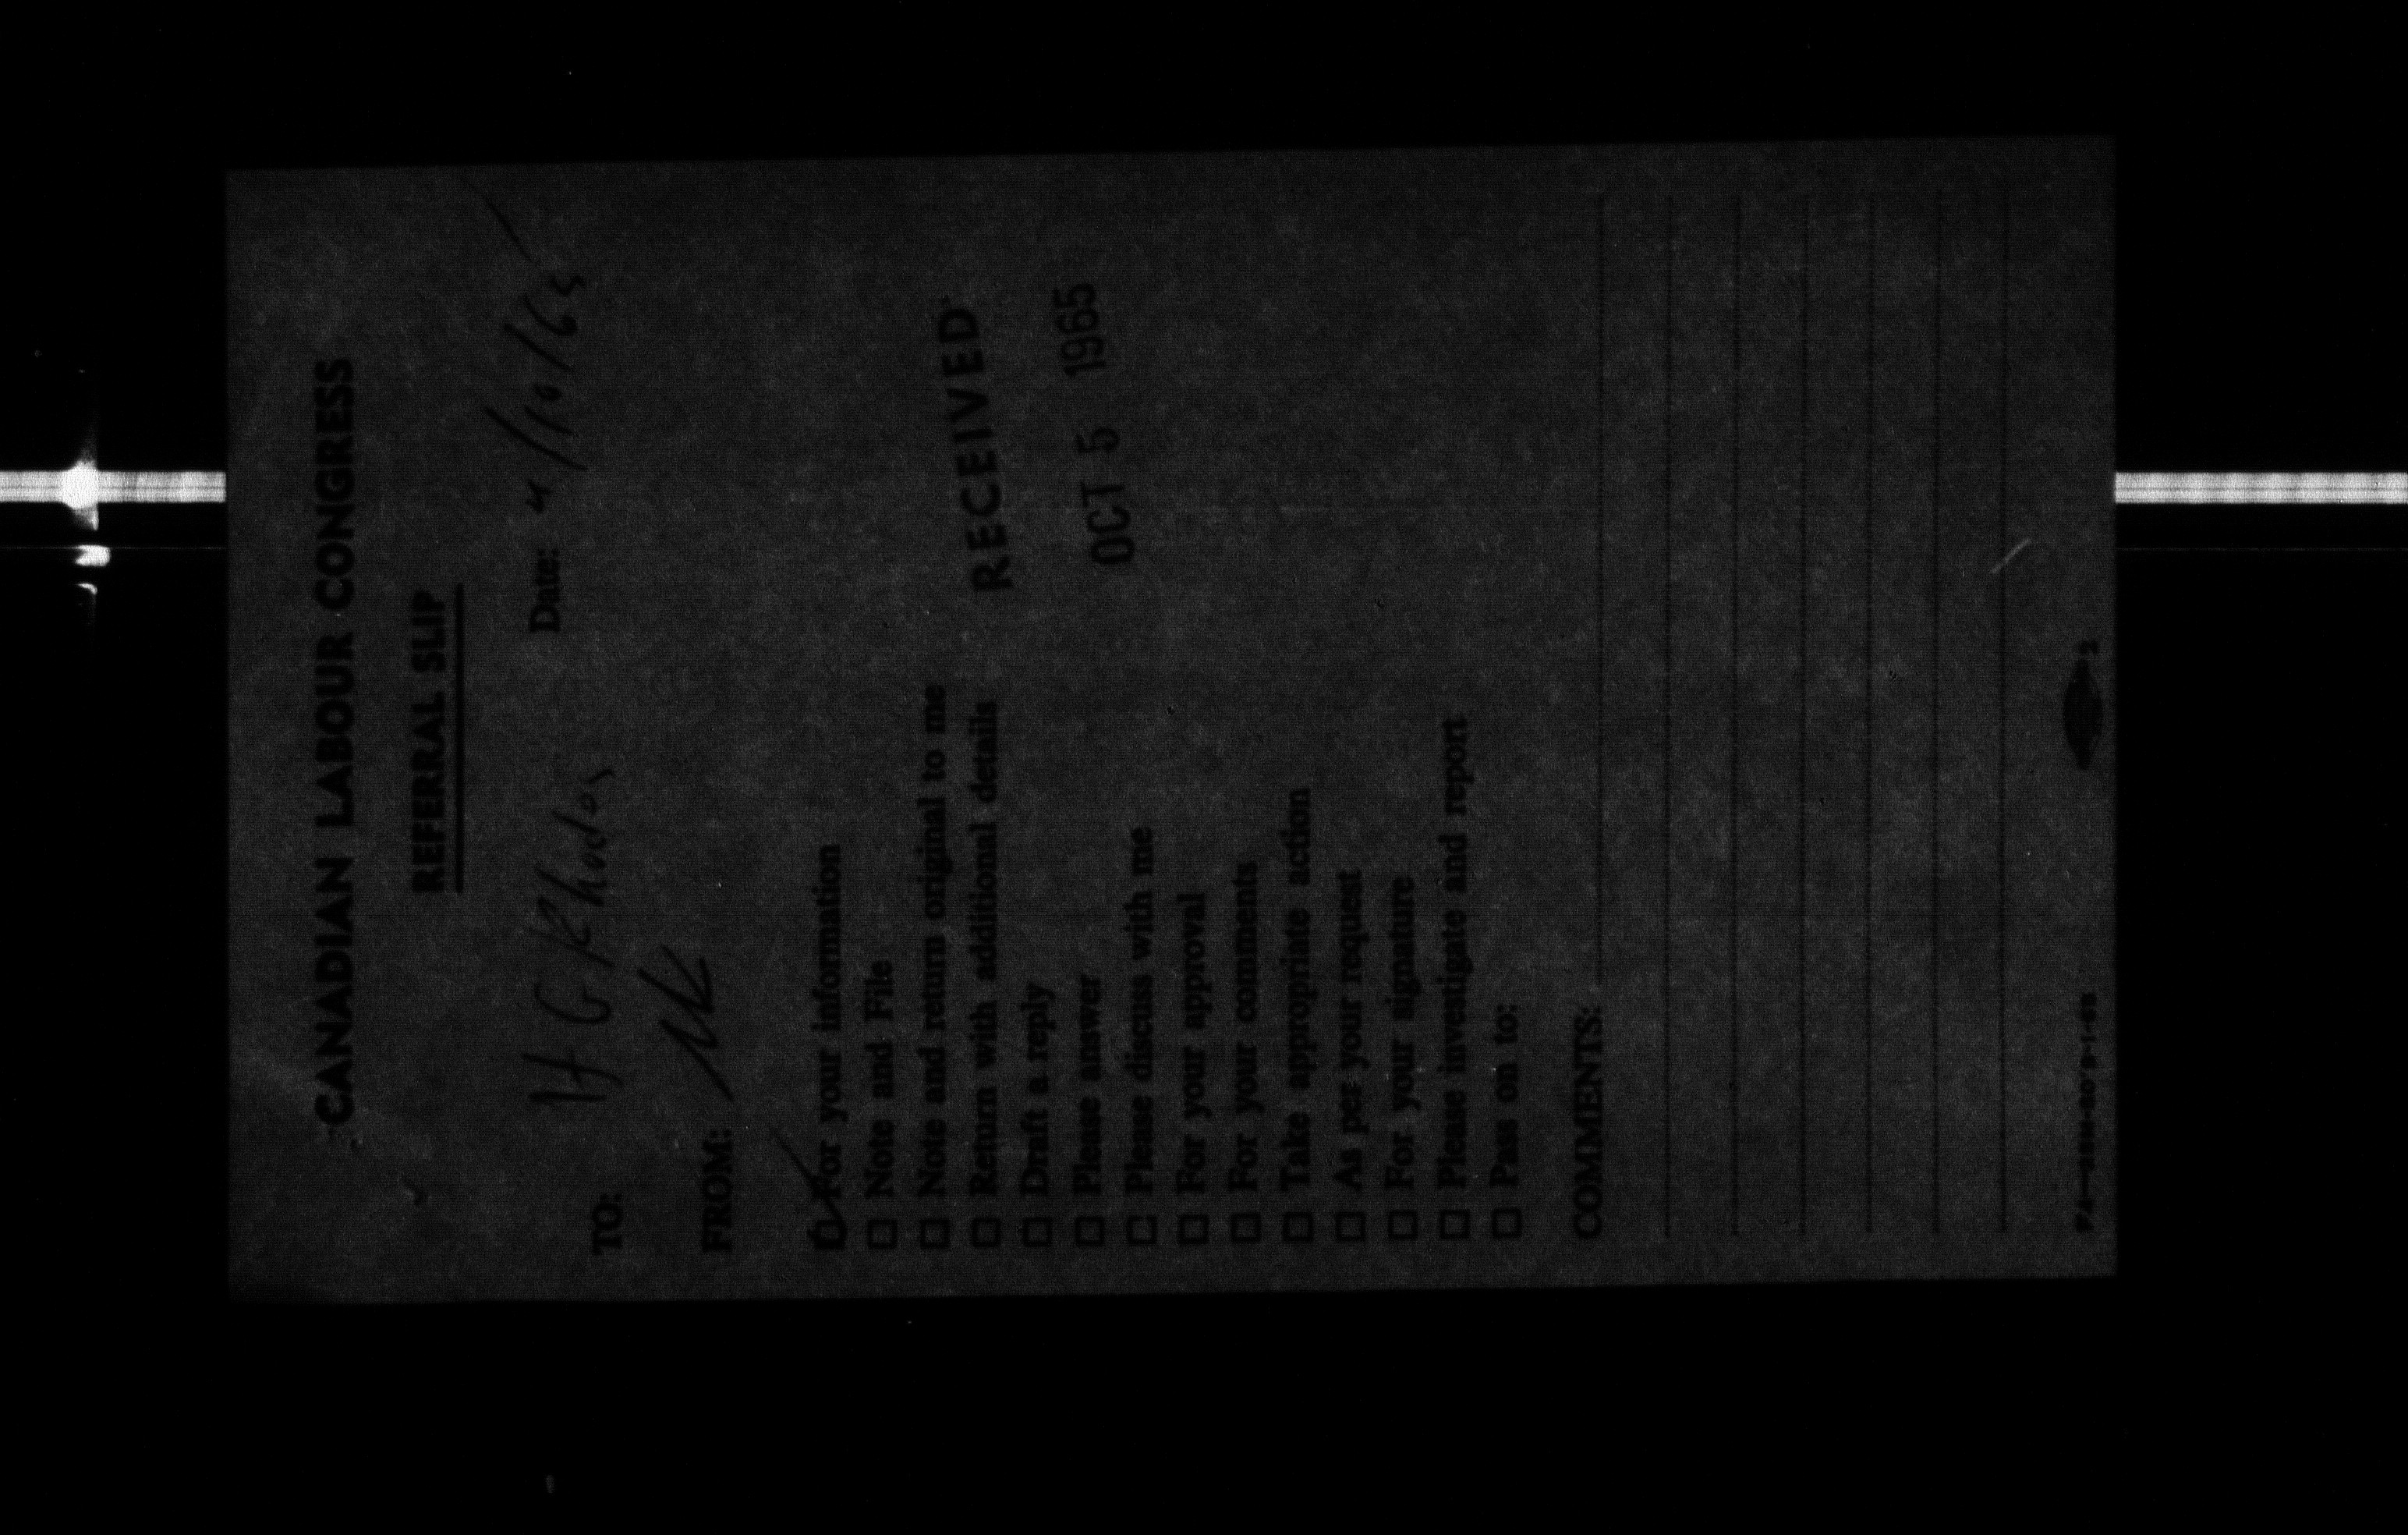 CANADIAN LABOUR CONGRESS
REFERRAL SLIP
Date: 4/10/65
TO: H G Rhodes
FROM:
☑ For your information
☐ Note and File
☐ Note and return original to me
☐ Return with additional details
RECEIVED
☐ Draft a reply
☐ Please answer
OCT 5 1965
☐ Please discuss with me
☐ For your approval
☐ For your comments
☐ Take appropriate action
☐ As per your request
☐ For your signature
☐ Please investigate and report
☐ Pass on to:
COMMENTS:
2